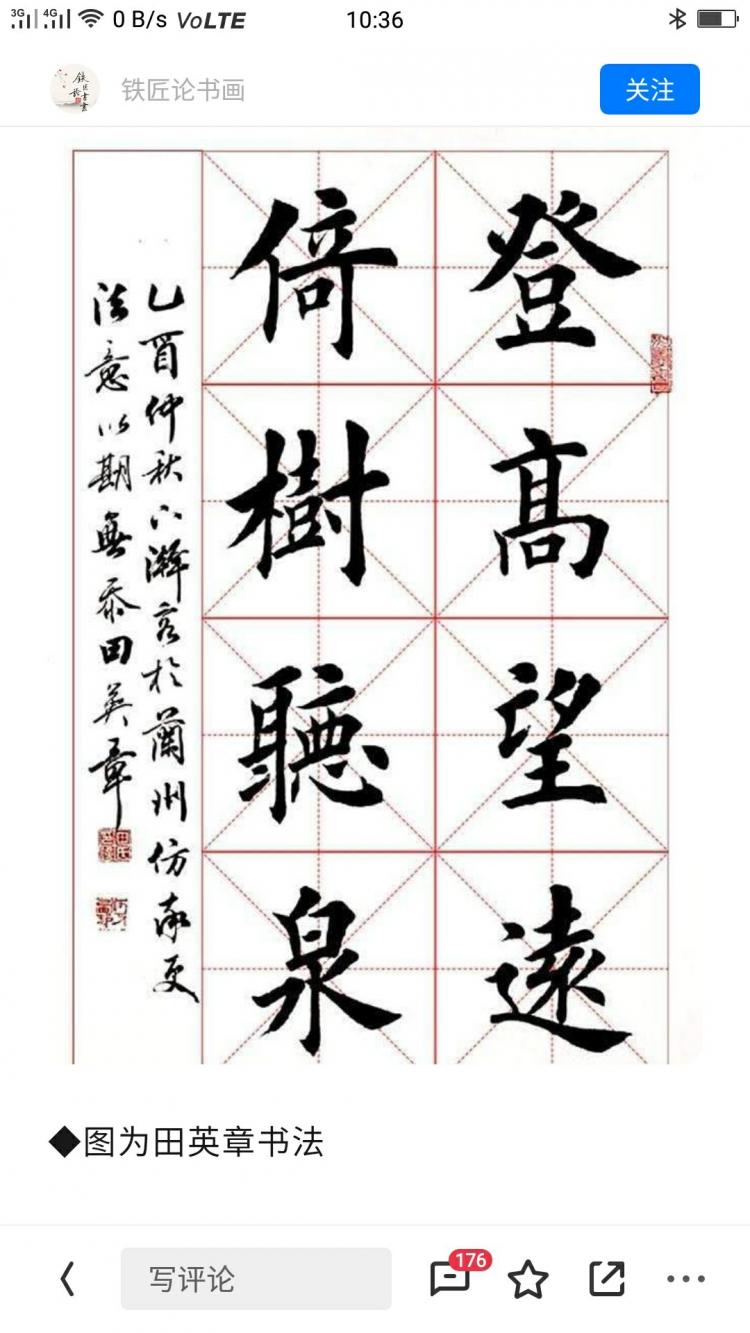 3G 4G 0 B/s VoLTE 10:36
铁匠论书画
关注
登高望遠
倚樹聽泉
乙酉仲秋下澣客於蘭州仿
法意以期無忝田英章
◆图为田英章书法
写评论
176